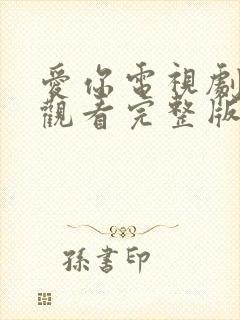 愛你電視劇
觀看完整版
孫書印